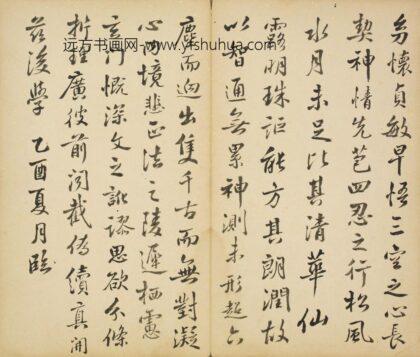 远方书画网
幼懷貞敏早悟三空之心長
契神情先苞四忍之行松風
水月未足比其清華仙
露明珠詎能方其朗潤故
以智通無累神測未形超六
塵而迥出隻千古而無對凝
心內境悲正法之陵遲栖慮
玄門慨深文之訛謬思欲分條
析理廣彼前聞截偽續真開
茲後學 乙酉夏月臨